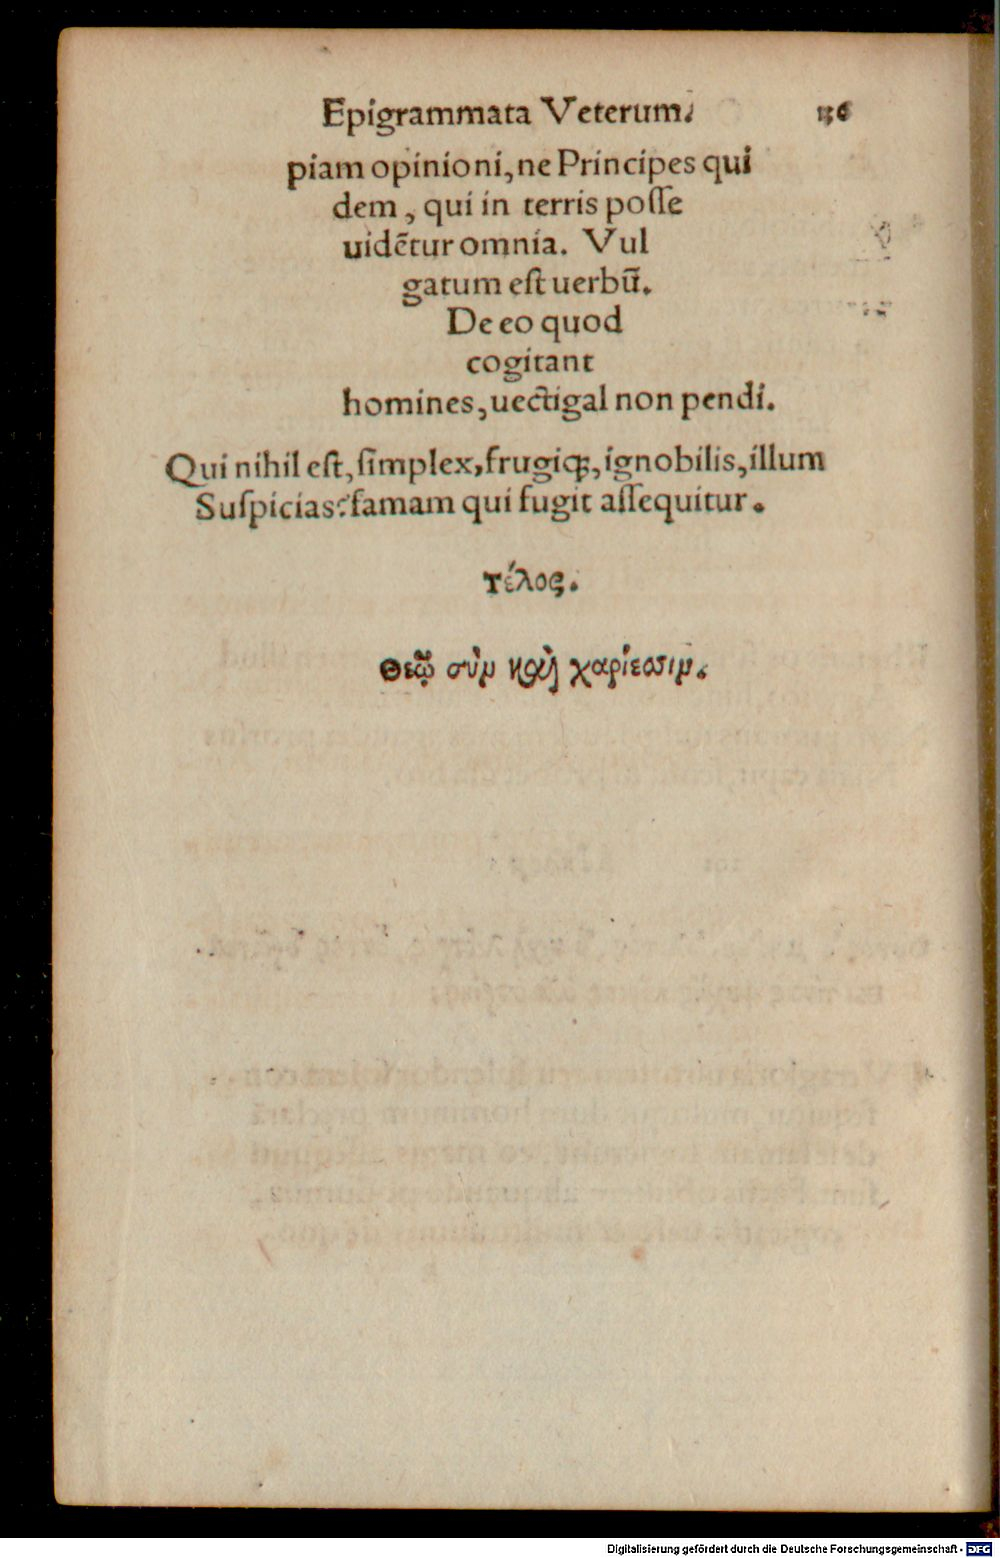 Epigrammata Veterum. 136
piam opinioni, ne Principes qui
dem, qui in terris poſſe
uidẽtur omnia. Vul
gatum eſt uerbũ.
De eo quod
cogitant
homines, uectigal non pendi.
Qui nihil eſt, ſimplex, frugiq́;, ignobilis, illum
Suſpicias: famam qui fugit aſſequitur.
τέλος.
Θεῷ σὺμ καὶ χαρίεσσιμ.
Digitalisierung gefördert durch die Deutsche Forschungsgemeinschaft - DFG